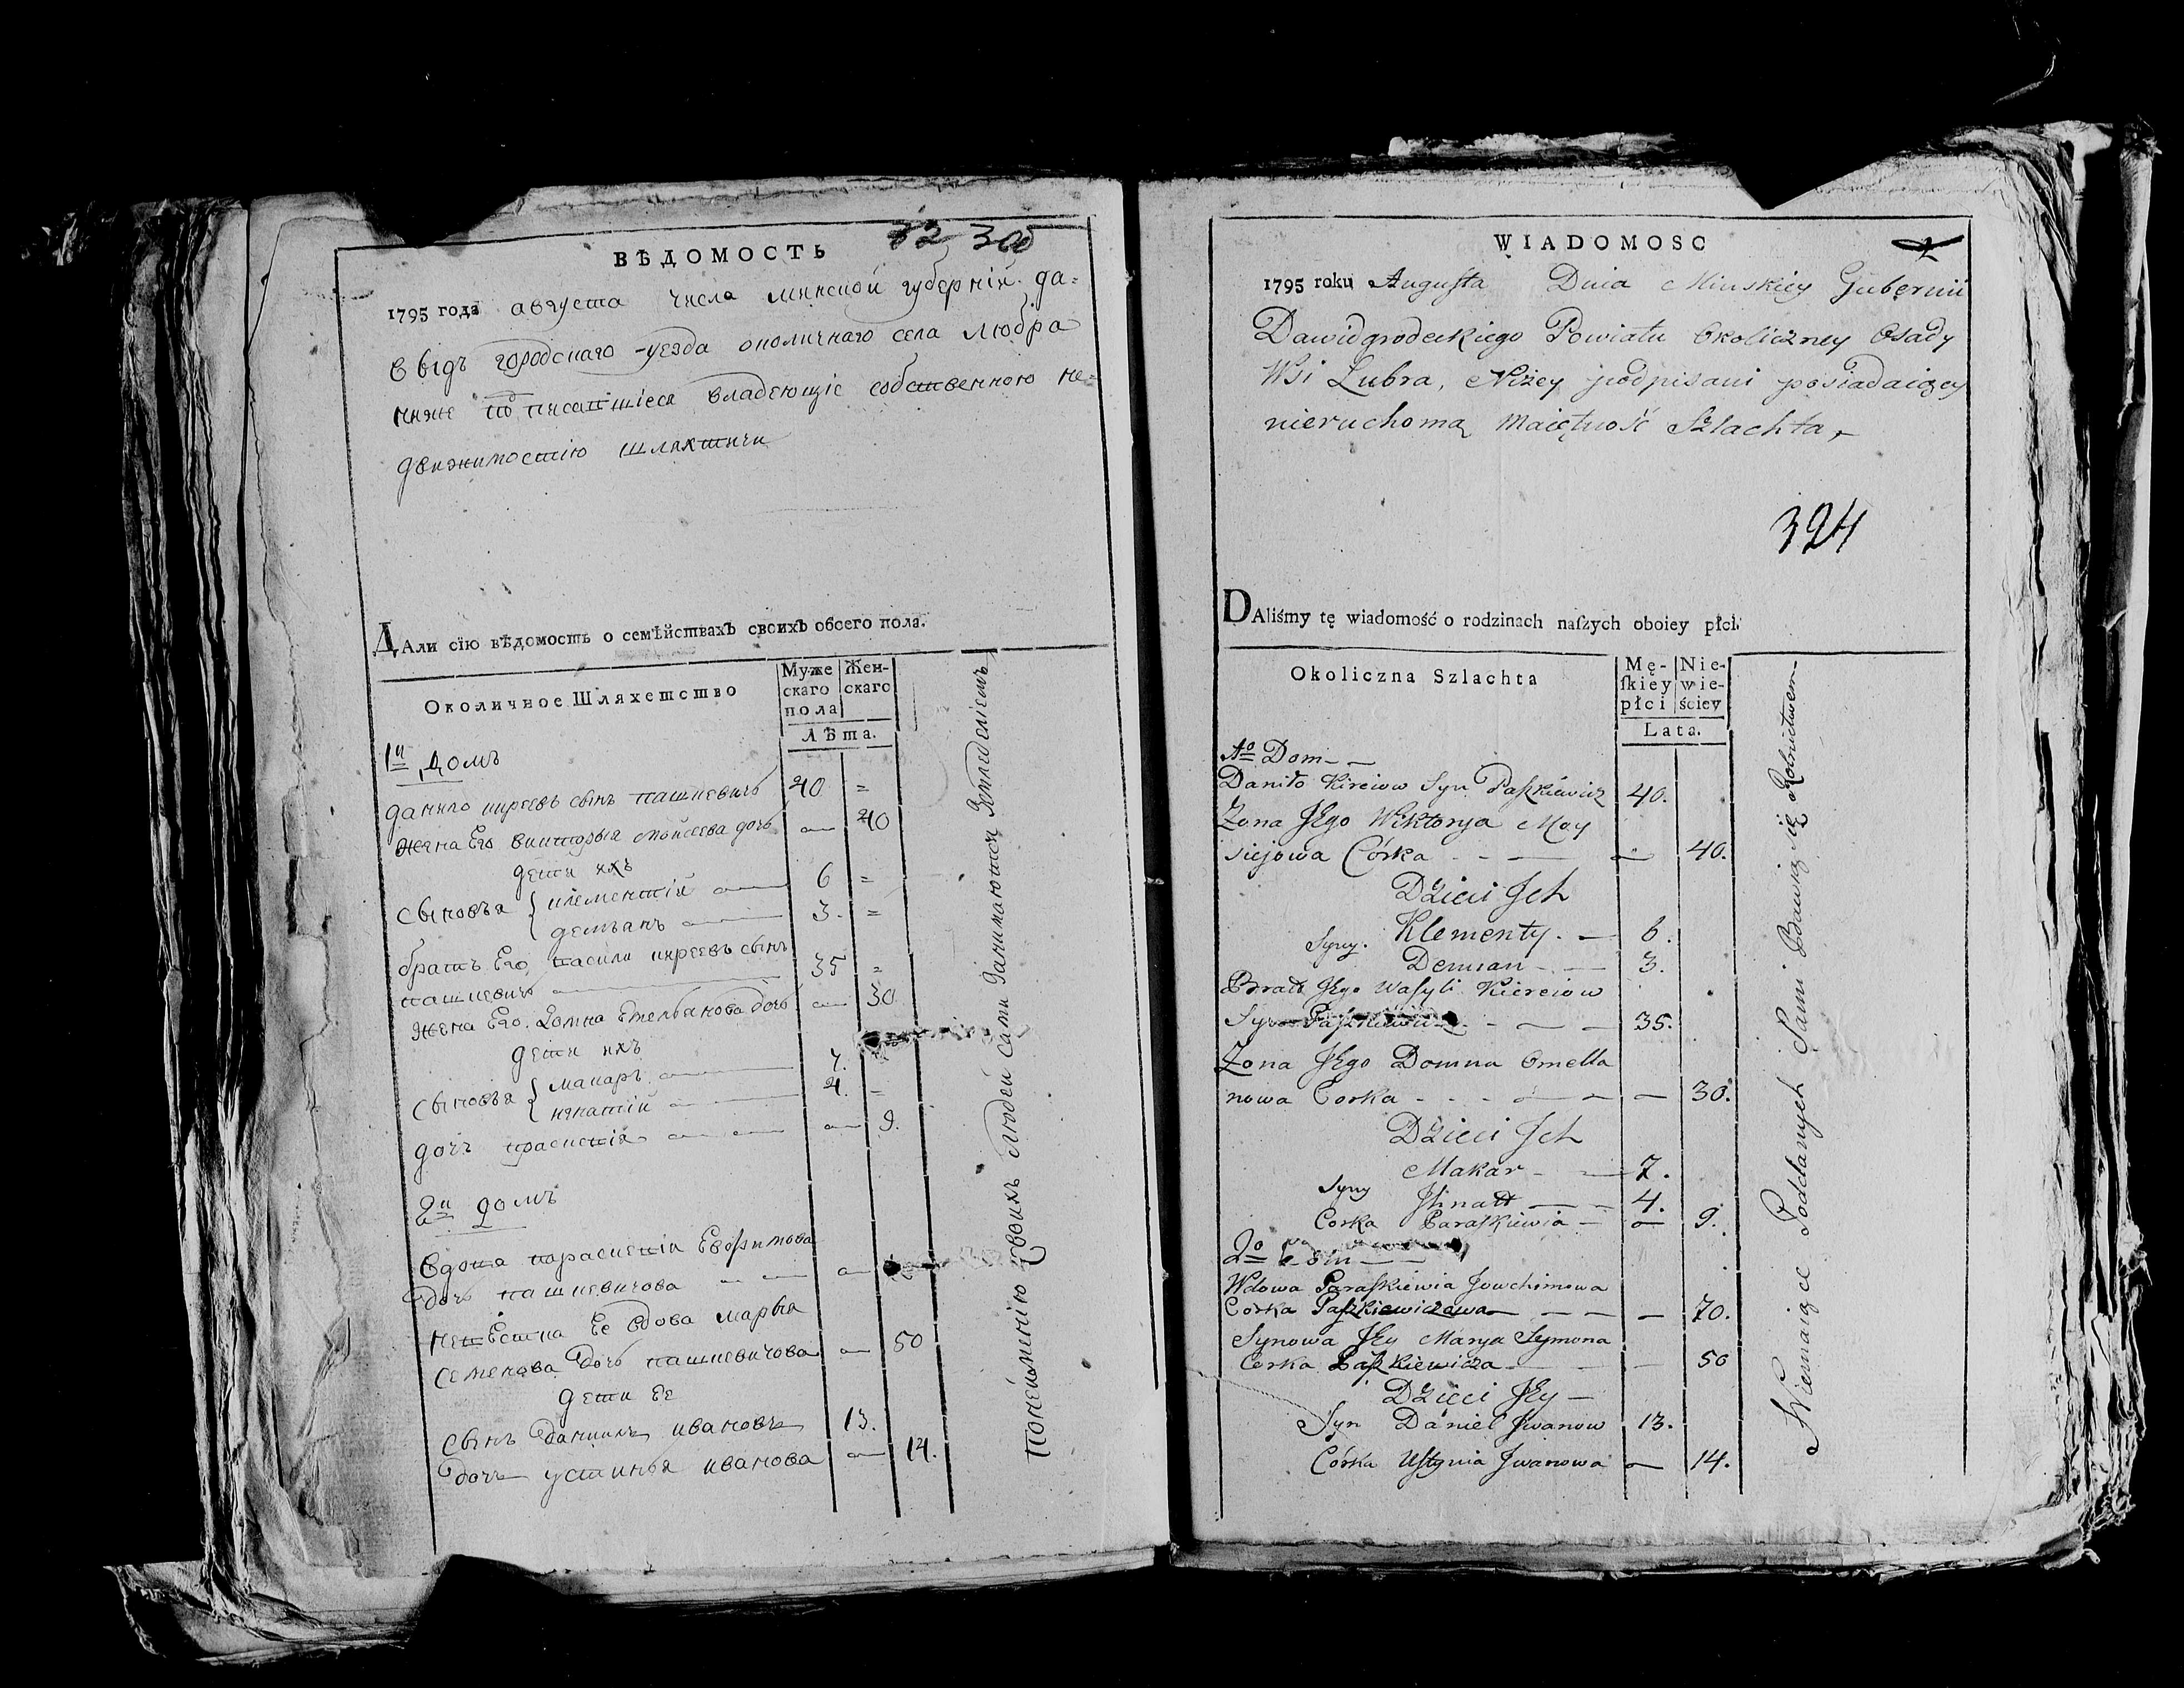 ВѢДОМОСТЬ
82 300
1795 года августа числа минской губерніи да=
видъ городскаго уезда околичнаго села Любра
ниже подписавшіеся владеющіе собственною не=
движимостію шляхтичи
ДАли сїю вѣдомость о семѣйствахъ своихъ обоего пола.
Околичное Шляхетство
Муже
скаго
пола
Жен-
скаго
Лѣта.
1й домъ
данило киреевъ сынъ пашкевичъ 40 =
жена Его викторыя моисеева дочь — 40
дети ихъ
сыновья { клементій — 6 =
демьанъ — 3. =
братъ Его, василий киреевъ сынъ
пашкевичъ — 35 =
жена Его. Домна Емельанова дочь — 30
дети ихъ
сыновья { макаръ — 7.
игнатій — 4. =
дочь праскевія — — 9.
2й домъ
вдова параскевія Евфимова
дочь пашкевичова — —
невестка Ее вдова марыа
семенова дочь пашкевичова — 50
дети Ее
сынъ даниилъ ивановъ 13.
дочь устинья иванова — 14.
Понеимению своихъ людей сами занимаются земледелиемъ
WIADOMOSC
1795 roku Augusta Dnia Minskiey Gubernii
Dawidgrodeckiego Powiatu Okoliczney Osady
Wsi Lubra, Niżey podpisani posiadaiący
nieruchomą Maiętność Szlachta,
324
DAliśmy tę wiadomość o rodzinach naszych oboiey płci.
Okoliczna Szlachta
Mę-
skiey
płci
Nie-
wie-
ściey
Lata.
1o Dom — —
Daniło Kireiow Syn Paszkiewicz 40.
Zona JEgo Wiktorya Moy
siejowa Córka - - — — 40.
Dzieci Jch
Syny. Klementy. — 6.
Demian - — 3.
Bratt JEgo Wasyli Kiereiow
Syn Paszkiewicz - — — 35.
Zona JEgo Domna Omella
nowa Corka - - - — — 30.
Dzieci Jch
Makar - — 7.
Syny Jhnatt — — 4.
Corka Paraskiewia — — 9.
2o Dom — —
Wdowa Paraskiewia Jowchimowa
Corka Paszkiewiczowa — — — — 70.
Synowa JEy Marya Symona
Corka Paszkiewicza — — 50
Dzieci JEy —
Syn Daniel Jwanow 13.
Córka Ustynia Jwanowa — 14.
Niemaiące Poddanych Sami Bawią się Rolnictwem